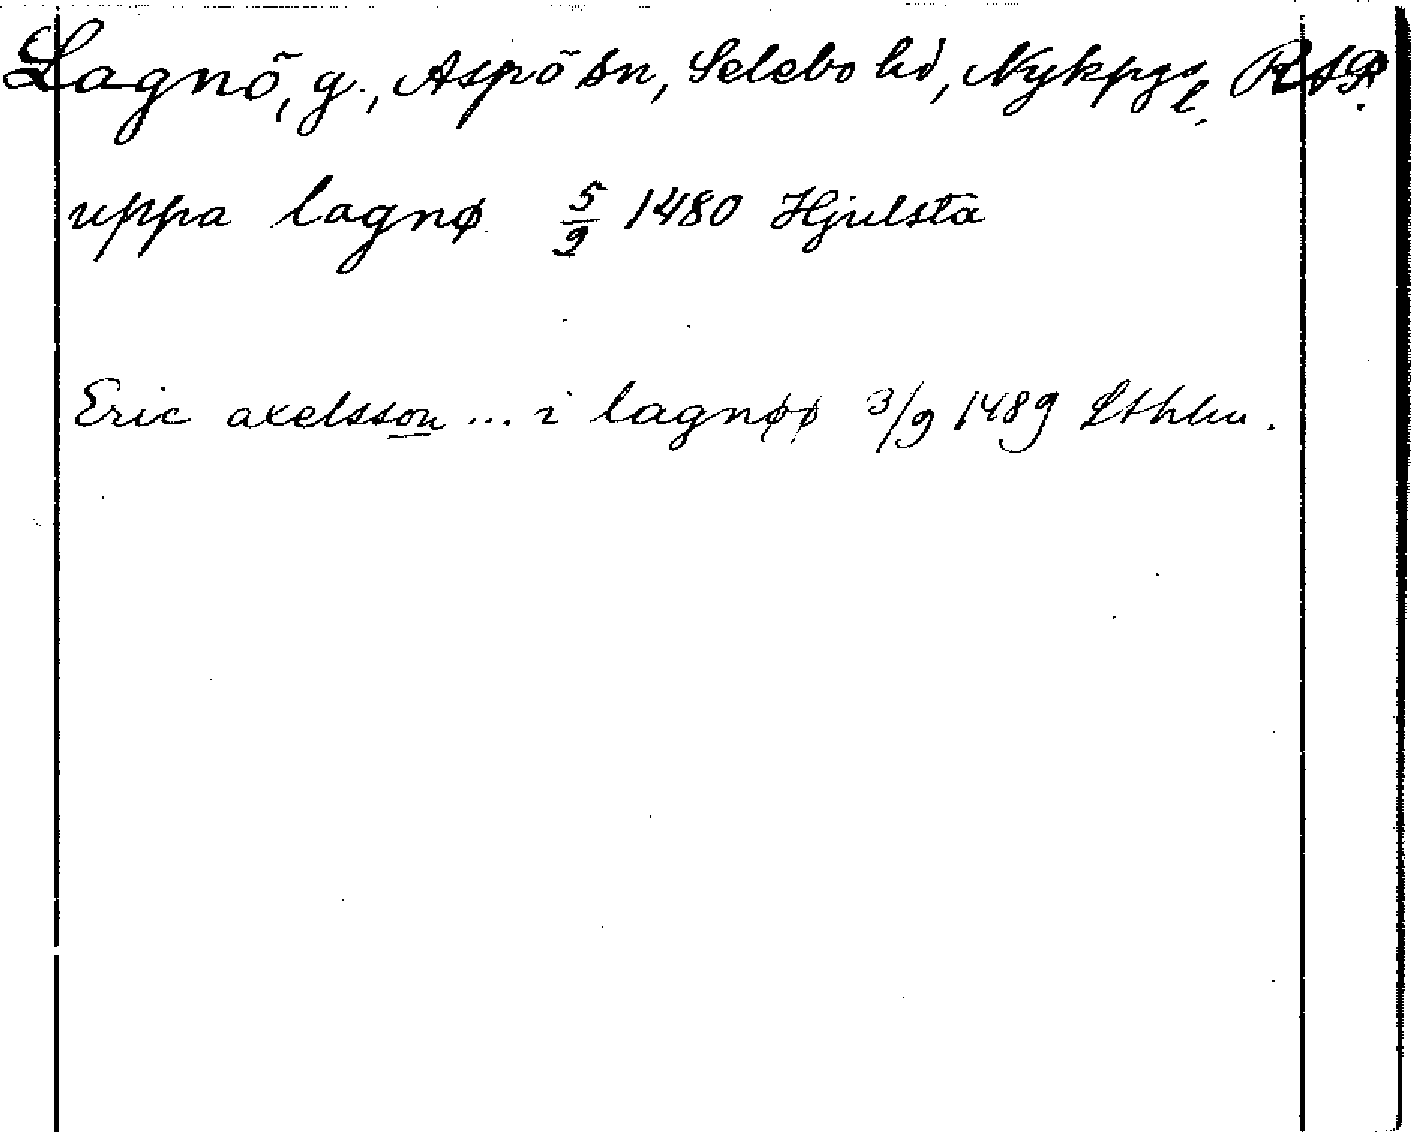 Lagnö, g., Aspö sn, Selebo hd, Nykpgs l. RAP.
uppa lagnø 5/9 1480 Hjulsta
Eric axelsson ... i lagnøø 3/9 1489 Sthlm.